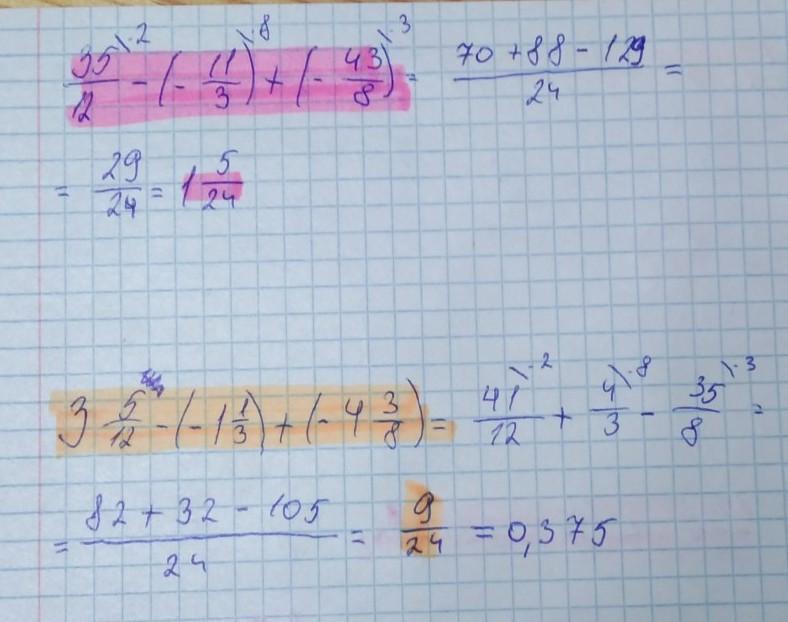 35/12 \·2 - (- 11/3) \·8 + (- 43/8) \·3 = (70 + 88 - 129)/24 =
= 29/24 = 1 5/24
3 5/12 - (-1 1/3) + (-4 3/8) = 41/12 \·2 + 4/3 \·8 - 35/8 \·3 =
= (82 + 32 - 105)/24 = 9/24 = 0,375